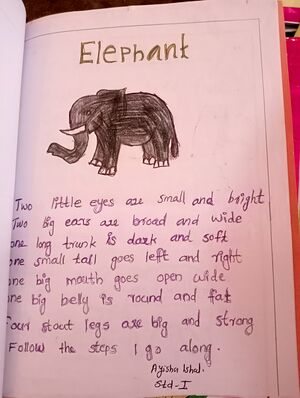 Elephant
Two little eyes are small and bright
Two big ears are broad and wide
one long trunk is dark and soft
one small tail goes left and right
one big mouth goes open wide
one big belly is round and fat
Four stout legs are big and strong
Follow the steps I go along.
Ayisha Ishal.
Std-I